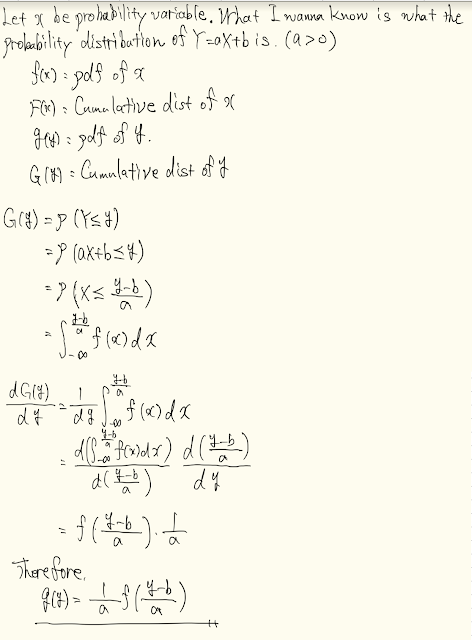 Let x be probability variable. What I wanna know is what the
probability distribution of Y=aX+b is. (a>0)
f(x) : pdf of x
F(x) : Cumulative dist of x
g(y) : pdf of y.
G(y) : Cumulative dist of y
G(y) = P (Y≤y)
= P (aX+b≤y)
= P (X≤ \frac{y-b}{a})
= ∫_{-∞}^{\frac{y-b}{a}} f(x) dx
\frac{dG(y)}{dy} = \frac{1}{dy} ∫_{-∞}^{\frac{y-b}{a}} f(x) dx
= \frac{d(∫_{-∞}^{\frac{y-b}{a}} f(x)dx)}{d(\frac{y-b}{a})} \frac{d(\frac{y-b}{a})}{dy}
= f(\frac{y-b}{a}) · \frac{1}{a}
Therefore,
g(y) = \frac{1}{a} f(\frac{y-b}{a})